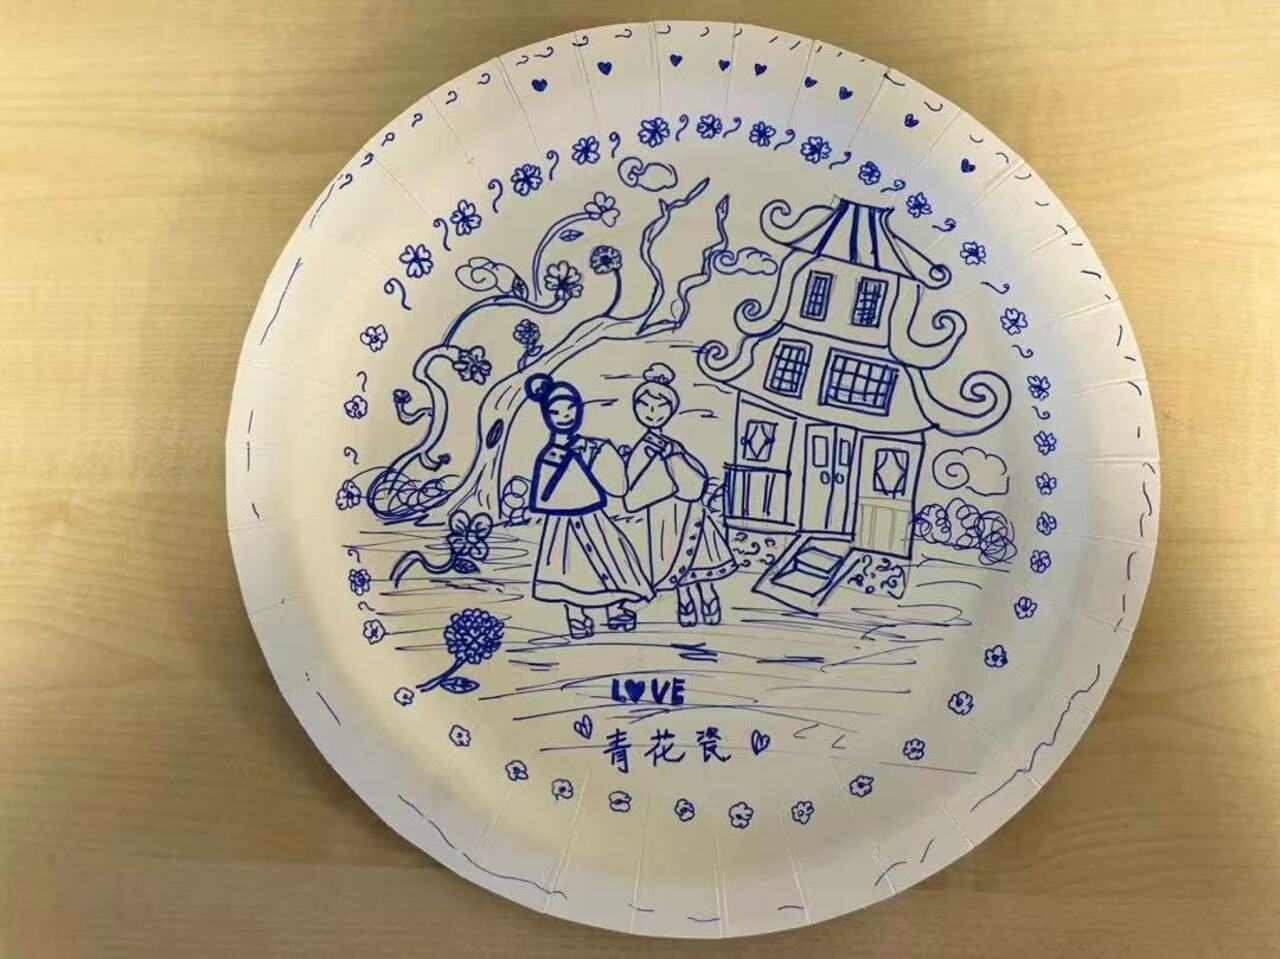 LOVE
青花瓷